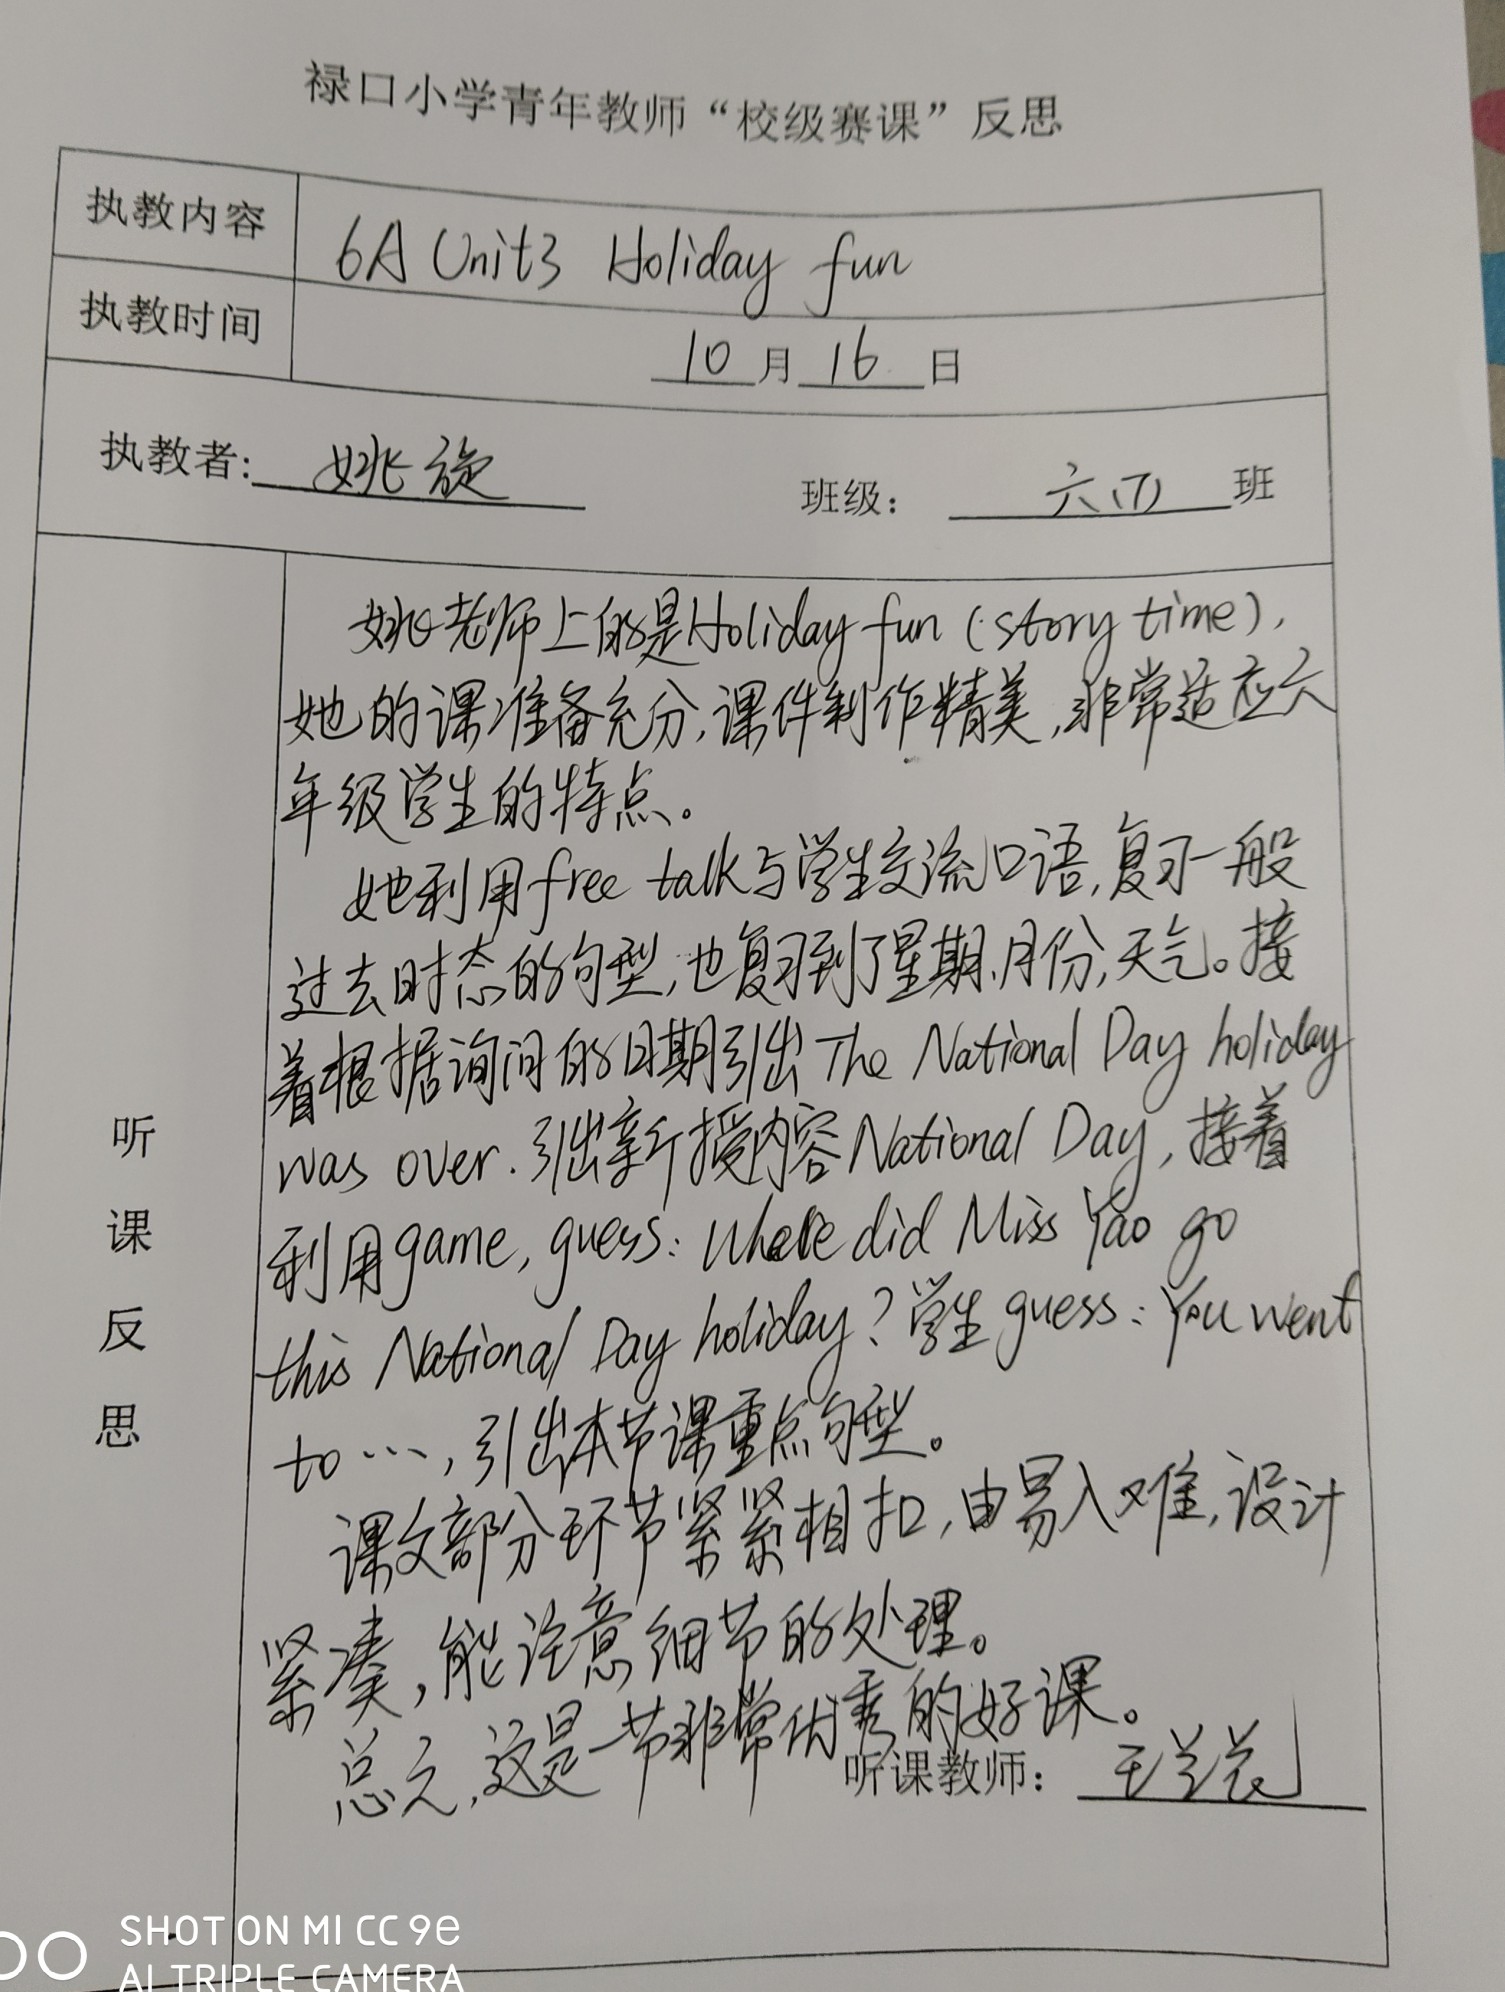 禄口小学青年教师“校级赛课”反思
执教内容
6A Unit3 Holiday fun
执教时间
10月16日
执教者:姚旋
班级：六(7)班
听课反思
姚老师上的是Holiday fun (story time),
她的课准备充分,课件制作精美,非常适应六
年级学生的特点。
她利用free talk与学生交流口语,复习一般
过去时态的句型,也复习到了星期、月份,天气。接
着根据询问的日期引出The National Day holiday
was over.引出新授内容National Day,接着
利用game, guess: Where did Miss Yao go
this National Day holiday?学生guess: You went
to …,引出本节课重点句型。
课文部分环节紧紧相扣,由易入难,设计
紧凑,能注意细节的处理。
总之,这是一节非常优秀的好课。
听课教师：王
SHOT ON MI CC 9e
AI TRIPLE CAMERA